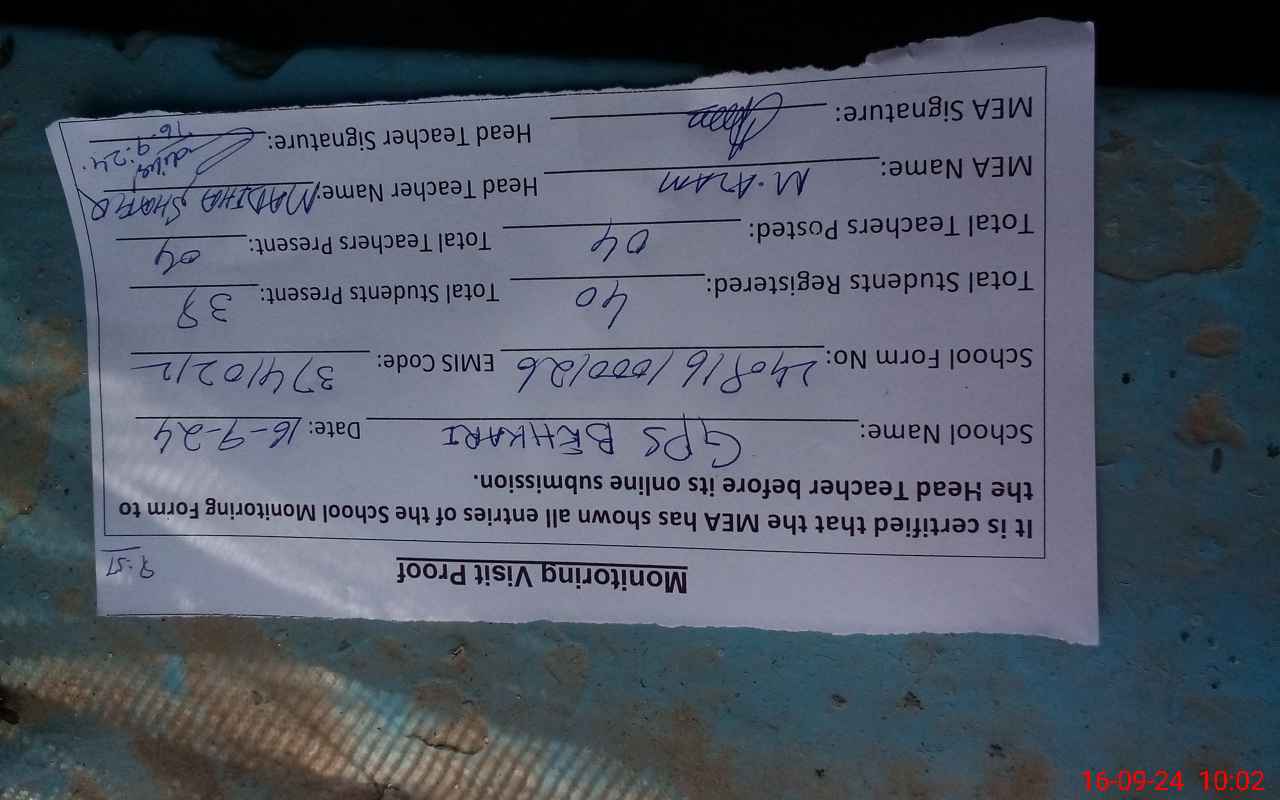 Monitoring Visit Proof
9:51
It is certified that the MEA has shown all entries of the School Monitoring Form to
the Head Teacher before its online submission.
School Name: GPS BEHKARI Date: 16-9-24
School Form No: 240816/000126 EMIS Code: 37410212
Total Students Registered: 40 Total Students Present: 38
Total Teachers Posted: 04 Total Teachers Present: 04
MEA Name: M. AZAM Head Teacher Name: MADIHA SHAFIQ
MEA Signature: Head Teacher Signature:
16-9-24.
16-09-24 10:02